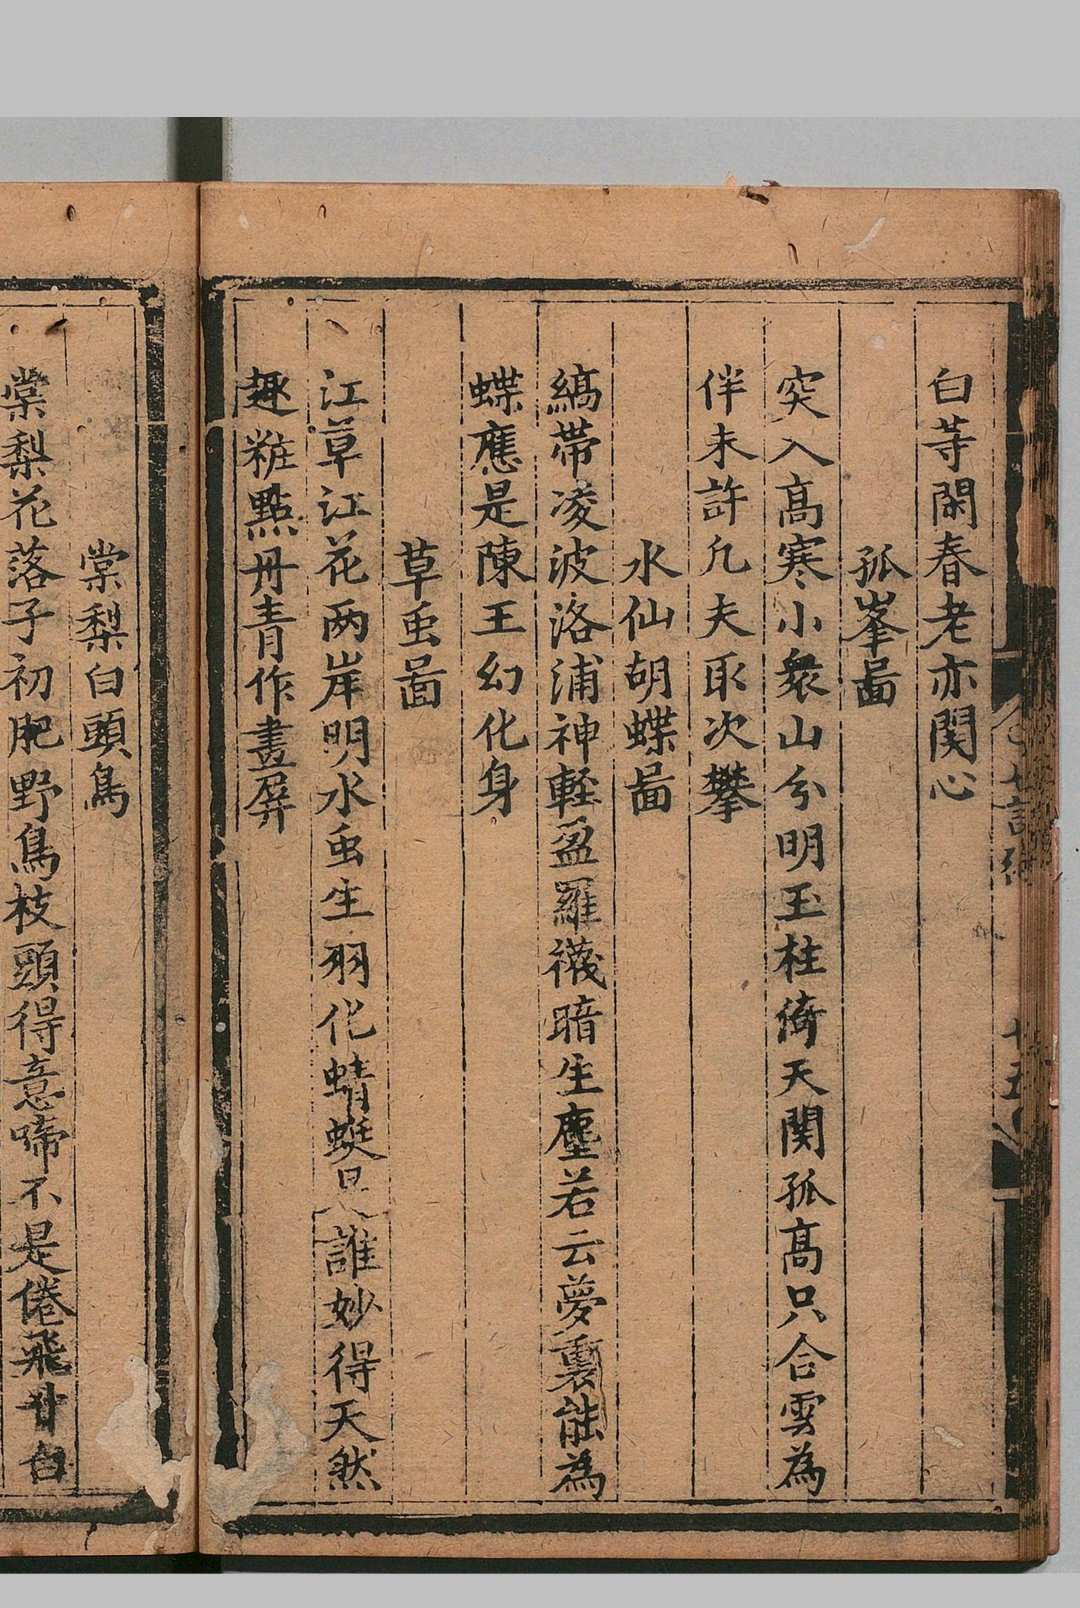 白等閑春老亦関心
孤峯啚
突入髙寒小衆山分明玉柱倚天関孤髙只合雲為
伴未許凡夫取次攀
水仙胡蝶啚
縞帯凌波洛浦神軽盈羅襪暗生塵若云夢裏能為
蝶應是陳王幻化身
草虫啚
江草江花两岸明水虫生羽化蜻蜓是誰妙得天然
趣粧點丹青作畫屏
棠梨白頭鳥
棠梨花落子初肥野鳥枝頭得意啼不是倦飛甘白